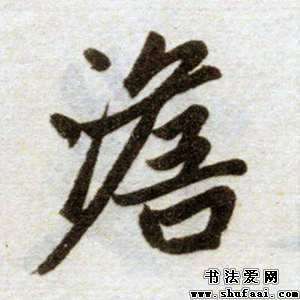 澹
书法爱网
www.shufaai.com